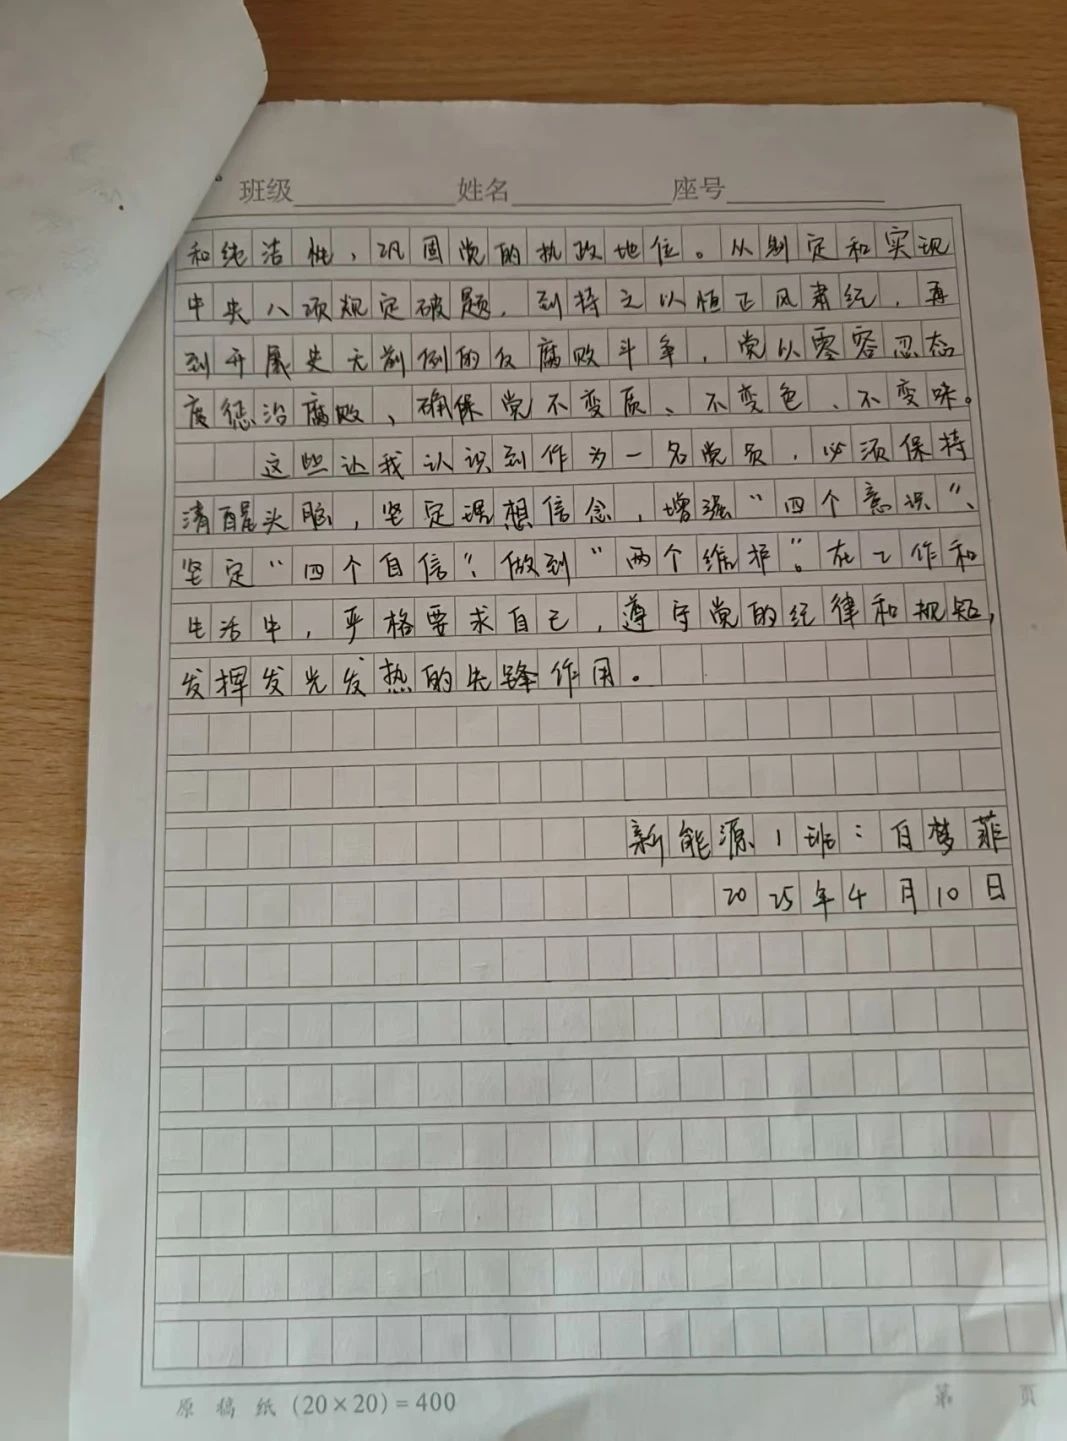 班级 姓名 座号
和纯洁性，巩固党的执政地位。从制定和实现
中央八项规定破题，到持之以恒正风肃纪，再
到开展史无前例的反腐败斗争，党以零容忍态
度惩治腐败，确保党不变质、不变色、不变味。
这些让我认识到作为一名党员，必须保持
清醒头脑，坚定理想信念，增强“四个意识”、
坚定“四个自信”，做到“两个维护”。在工作和
生活中，严格要求自己，遵守党的纪律和规矩，
发挥发光发热的先锋作用。
新能源1班：白梦菲
2025年4月10日
原稿纸(20×20)=400 第 页